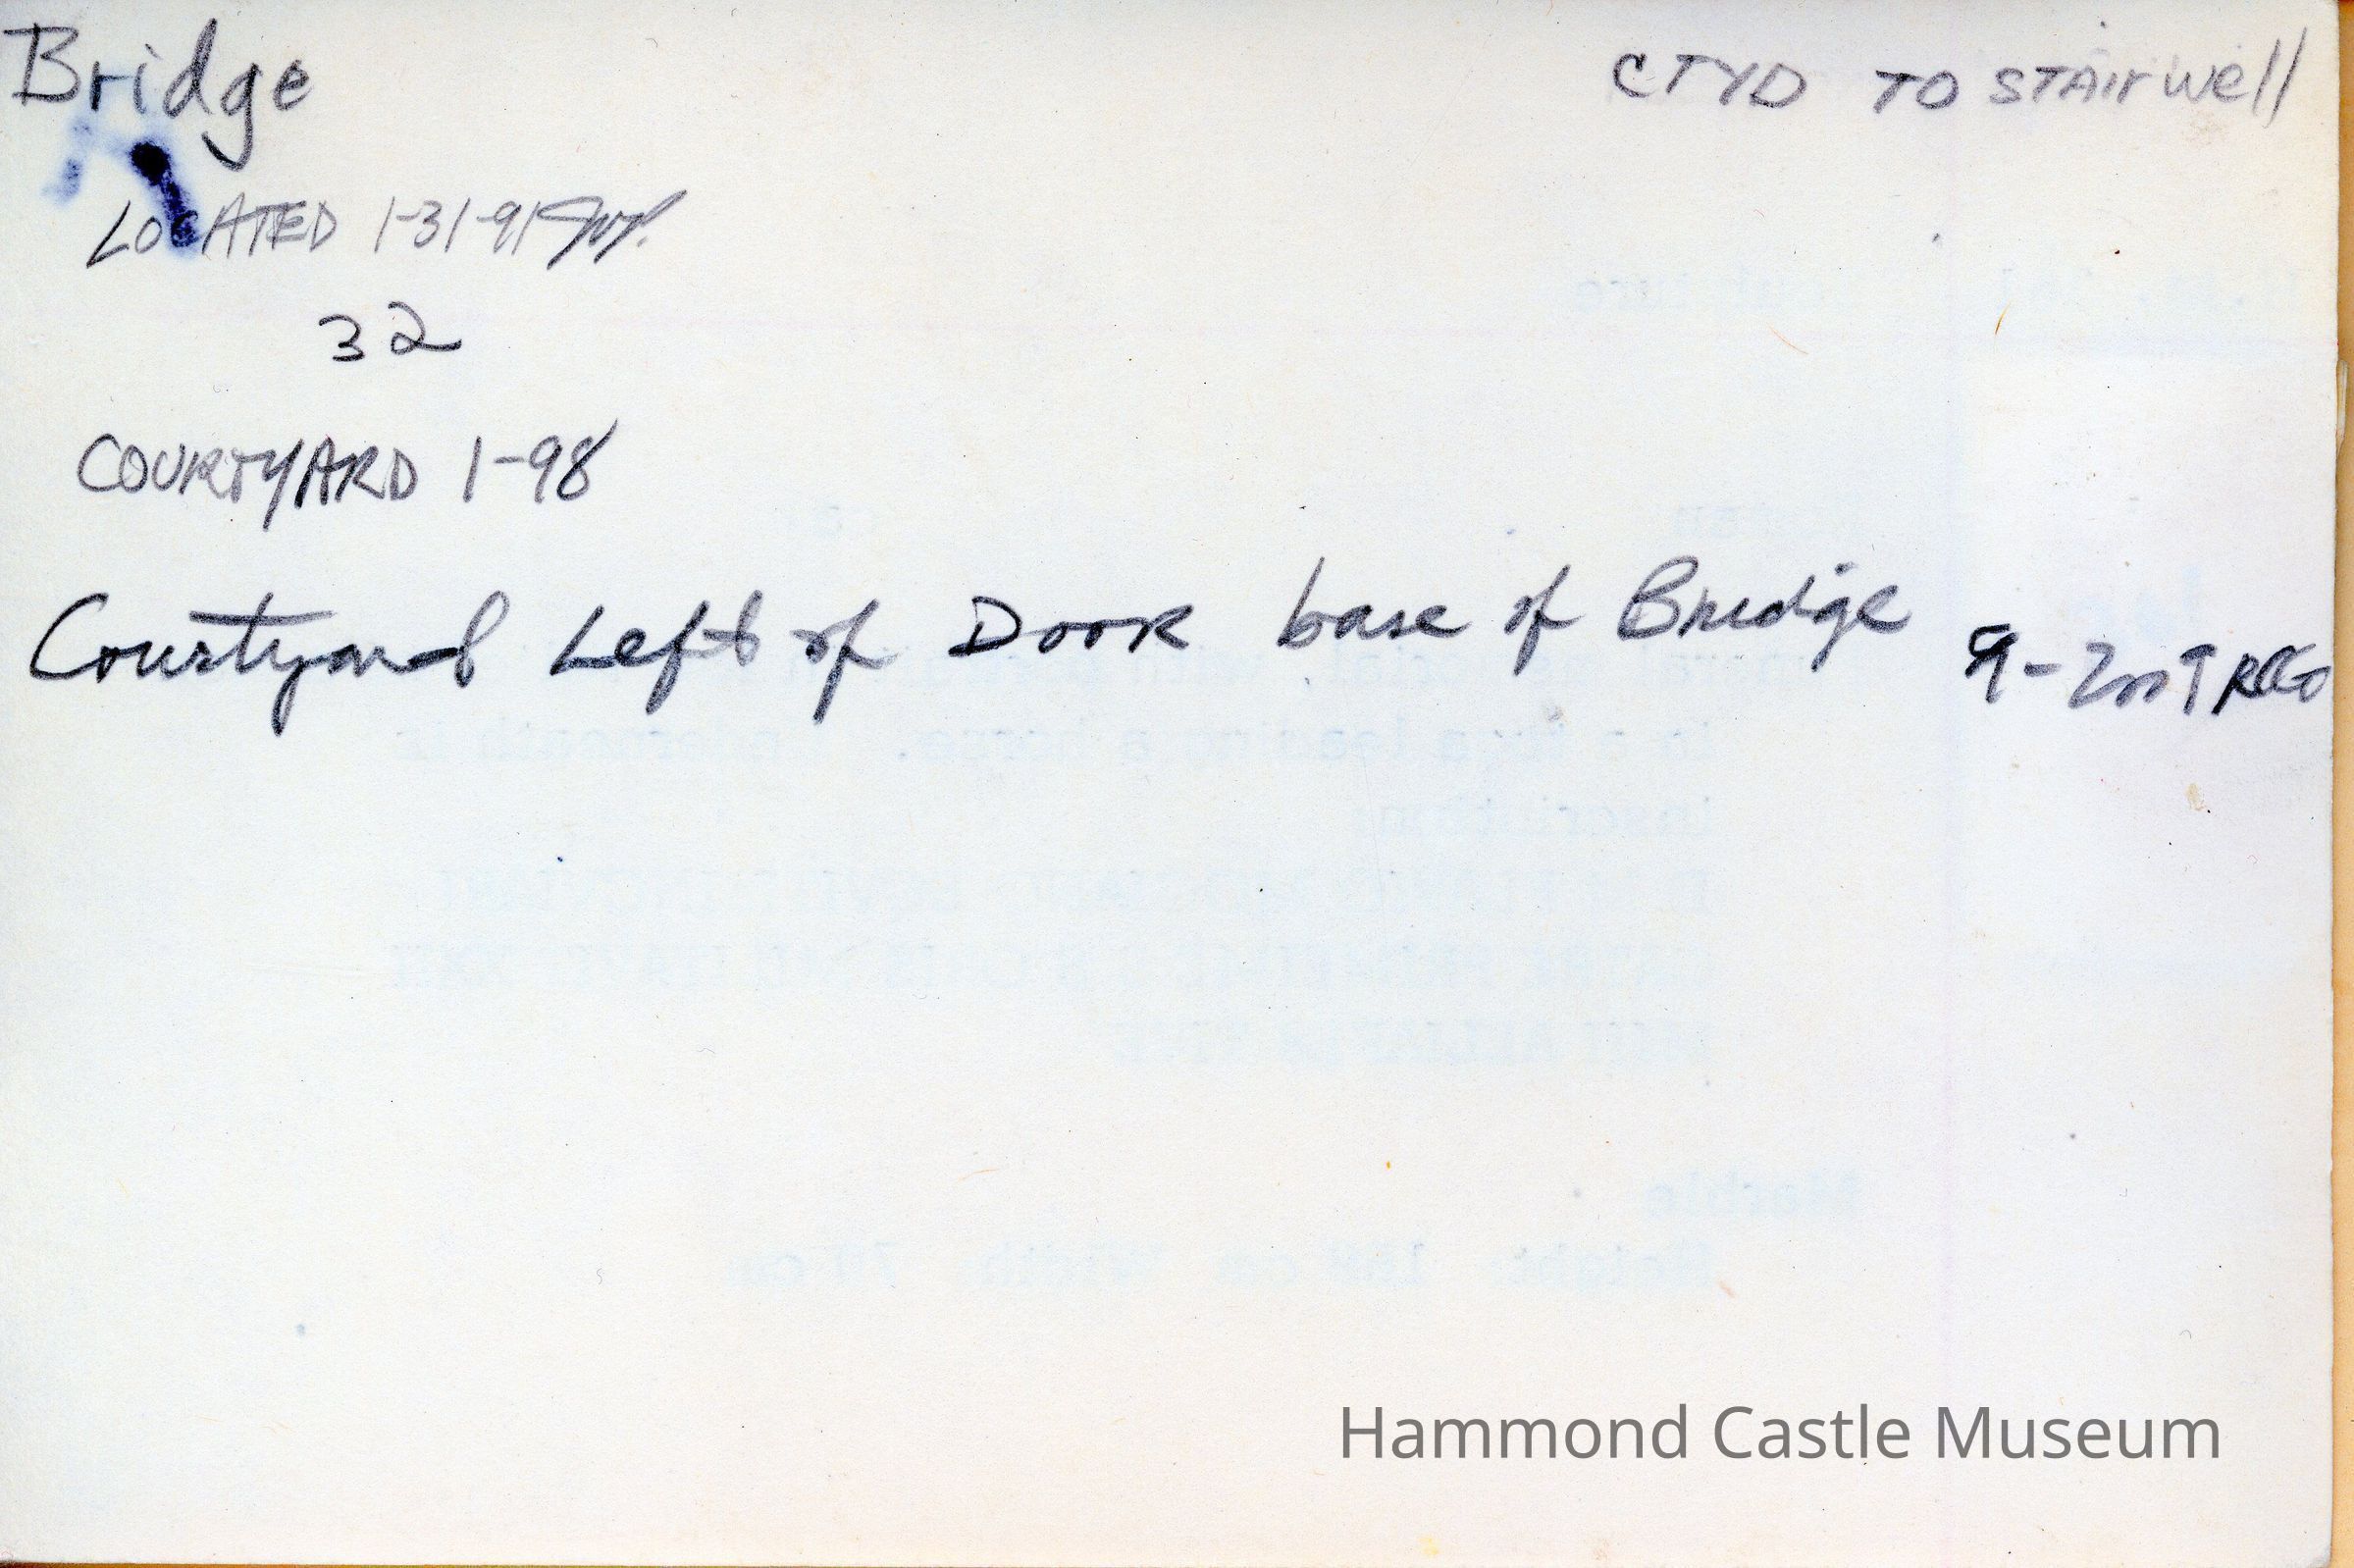 Bridge
CTYD TO STAIRWell
LOCATED 1-31-91
32
COURTYARD 1-98
Courtyard Left of Door base of Bridge 9-2009
Hammond Castle Museum